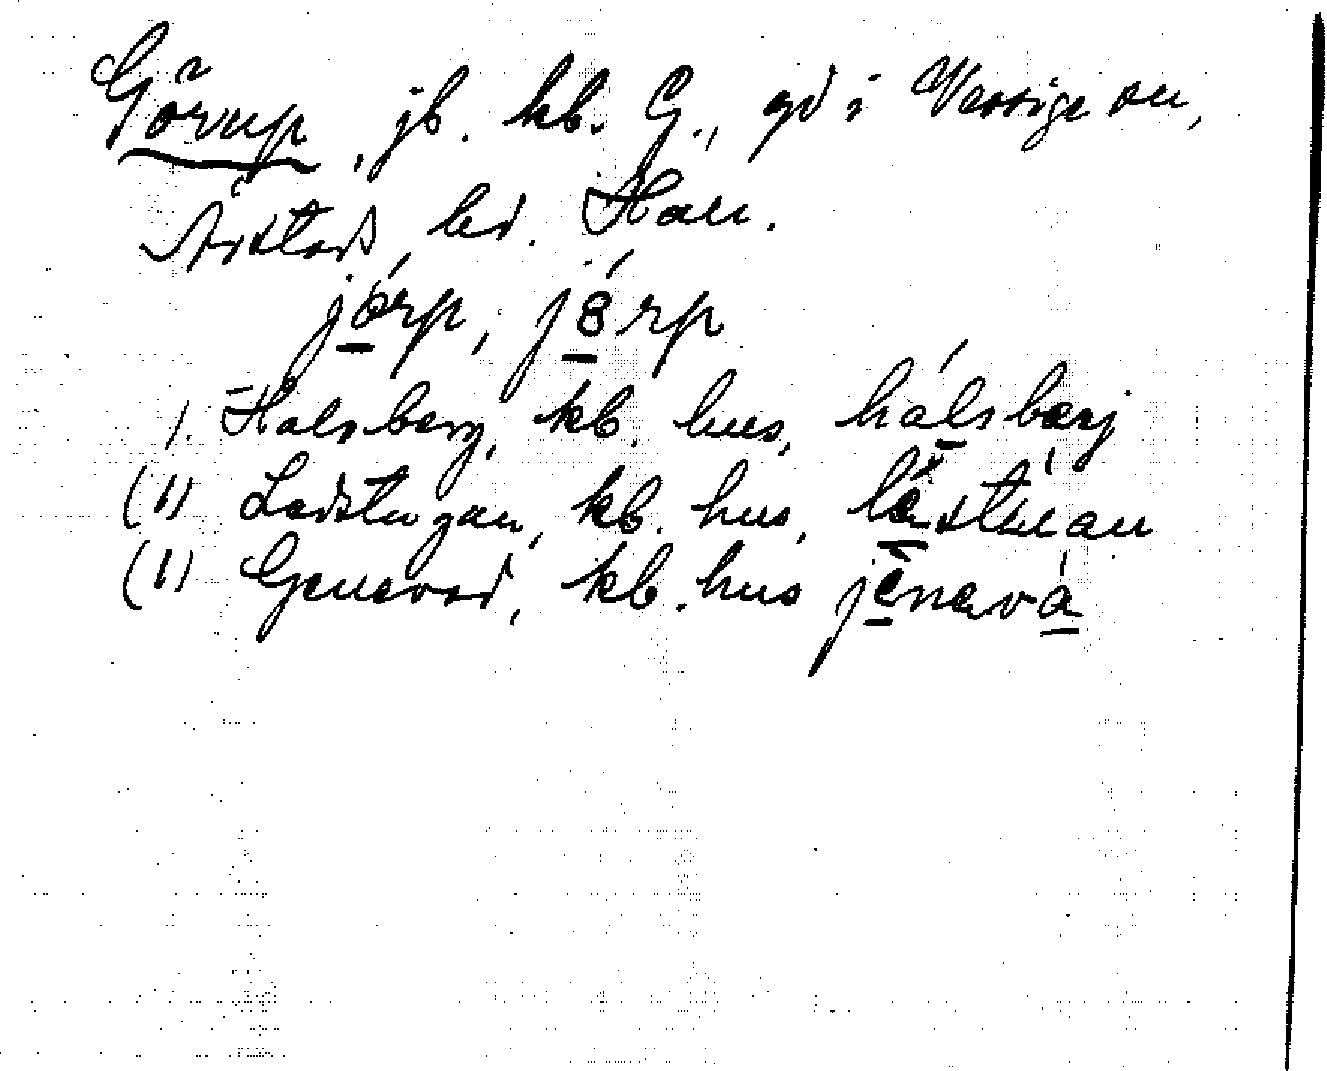 Görup, jb. kb. G., gd i Vessige sn,
Årstads hd. Hall.
jörp, jörp
1. Halsberg, kb. hus, hálsbærj
(1) Ladstugan, kb. hus, lastuan
(1) Genevad, kb. hus jenavá